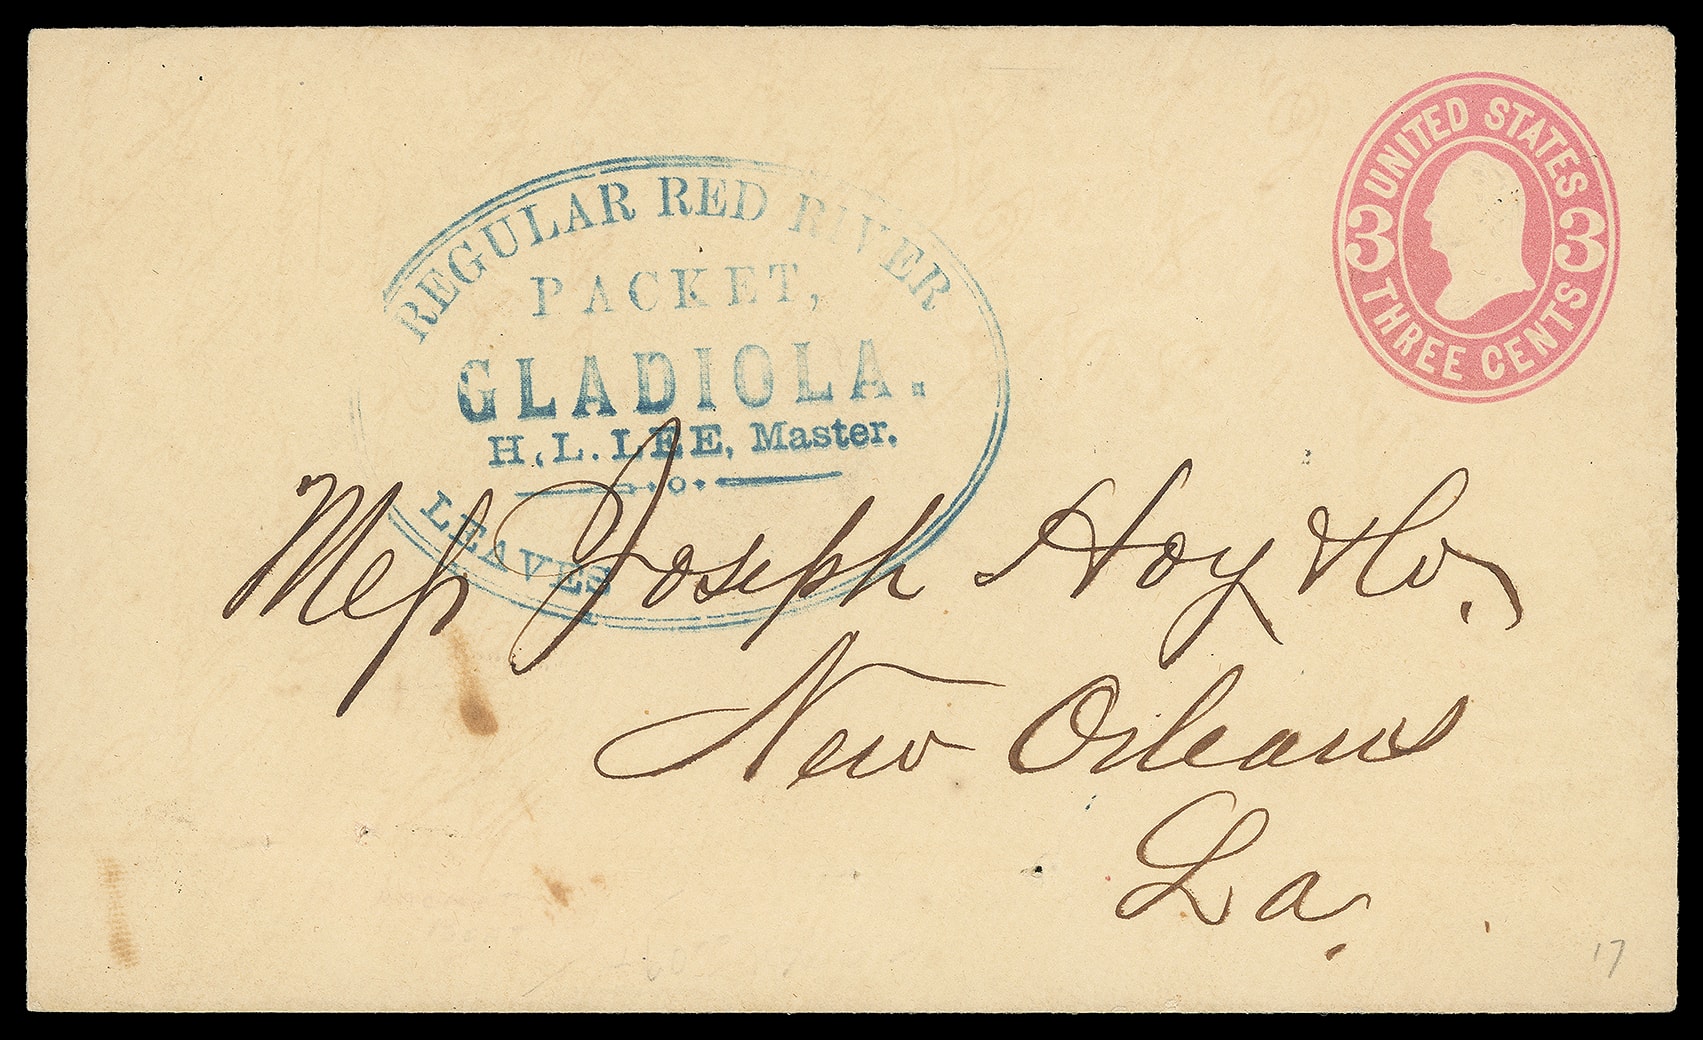 UNITED STATES
3 3
THREE CENTS
REGULAR RED RIVER
PACKET,
GLADIOLA.
H. L. LEE, Master.
LEAVES
Mess Joseph Hoy & Co.,
New Orleans
La.
17